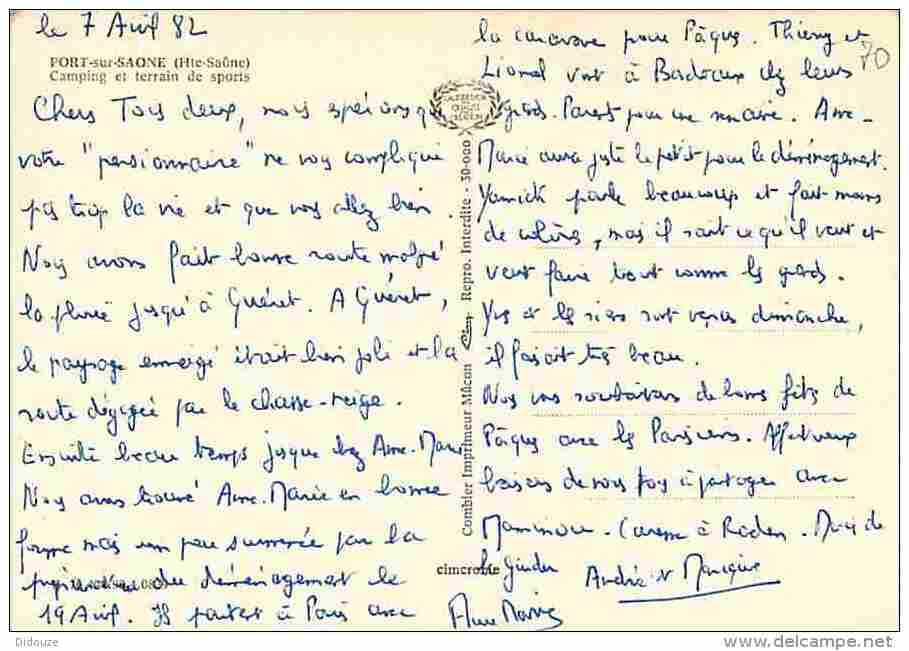 le 7 Avril 82
PORT-sur-SAONE (Hte-Saône)
Camping et terrain de sports
Chers Tous deux, nous espérons que
votre "pensionnaire" ne vous complique
pas trop la vie et que vous allez bien.
Nous avons fait bonne route malgré
la pluie jusqu'à Guéret. A Guéret,
le paysage enneigé était bien joli et la
route dégagée par le chasse-neige.
Ensuite beau temps jusque chez Anne-Marie
Nous avons trouvé Anne-Marie en bonne
forme mais un peu surmenée par la
du déménagement le
19 Avril. Ils partent à Paris avec
la caravane pour Pâques. Thierry et
Lionel vont à Bordeaux chez leurs
grds. Parents pour une semaine. Anne-
Marie aura juste le petit pour le déménagement.
Yannick parle beaucoup et fait moins
de colères, mais il sait ce qu'il veut et
veut faire tout comme les grds.
Yves et les siens sont venus dimanche,
il faisait très beau.
Nous vous souhaitons de bonnes fêtes de
Pâques avec les Parisiens. Affectueux
baisers de nous tous à partager avec
Maminou. Caresse à Merci de
le Guider
André et Monique
Anne Marie
Combier Imprimeur Mâcon Repro. Interdite - 30-000
cimcrome
70
Didouze
www.delcampe.net